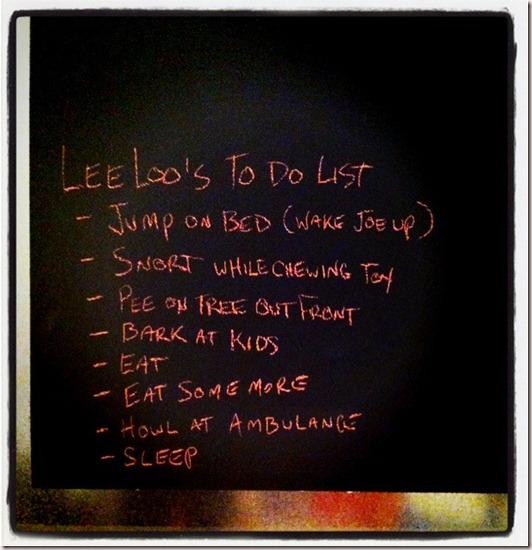 LEE LOO'S TO DO LIST
- JUMP ON BED (WAKE JOE UP)
- SNORT WHILE CHEWING TOY
- PEE ON TREE OUT FRONT
- BARK AT KIDS
- EAT
- EAT SOME MORE
- HOWL AT AMBULANCE
- SLEEP